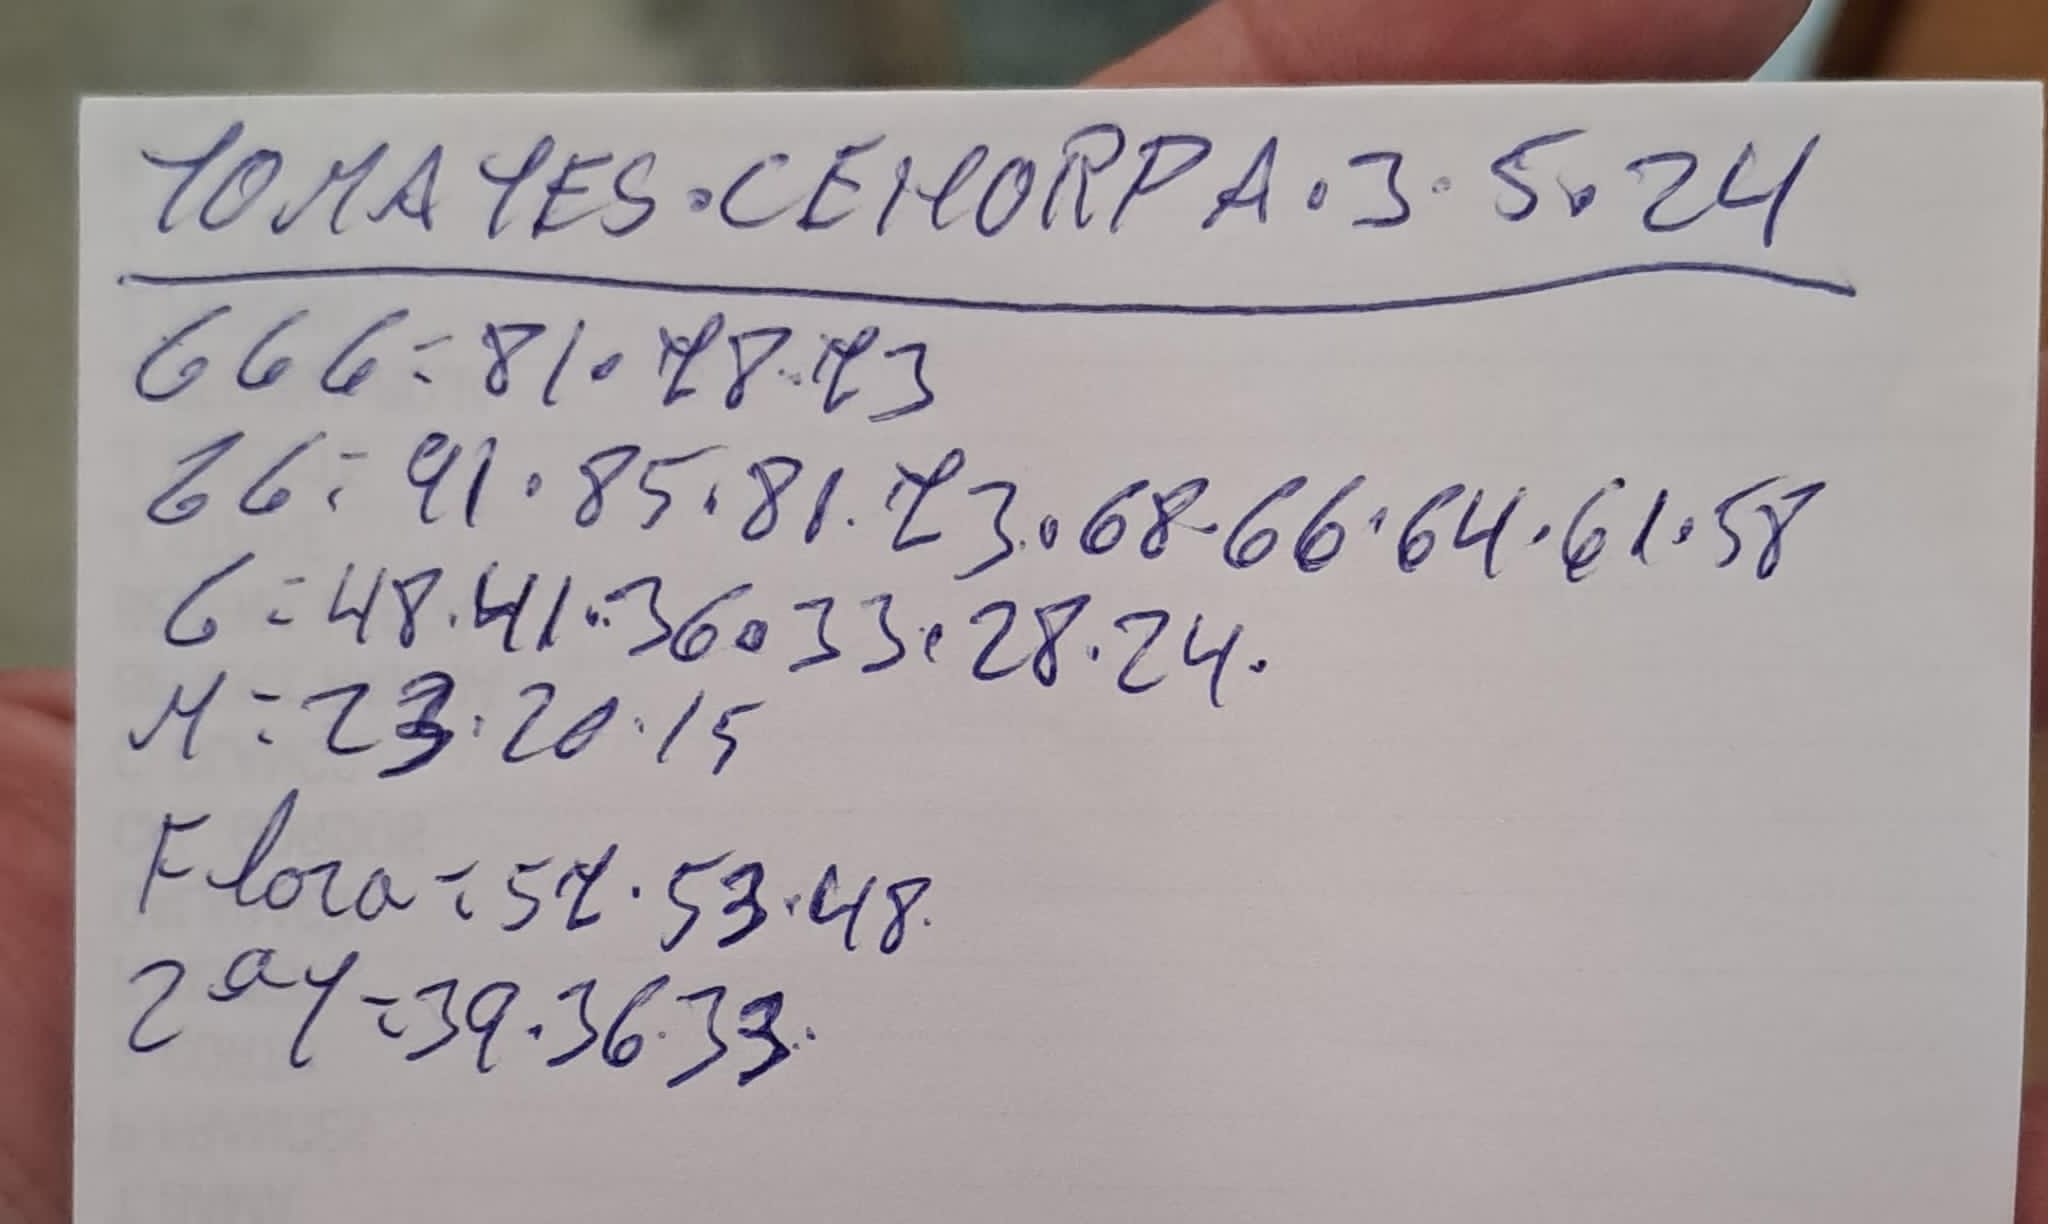 TOMATES.CEHORPA.3.5.24
GGG=81.78.73
GG=91.85.81.73.68.66.64.61.58
G=48.41.36.33.28.24.
M=23.20.15
Flora=57.53.48.
2ªT=39.36.33.